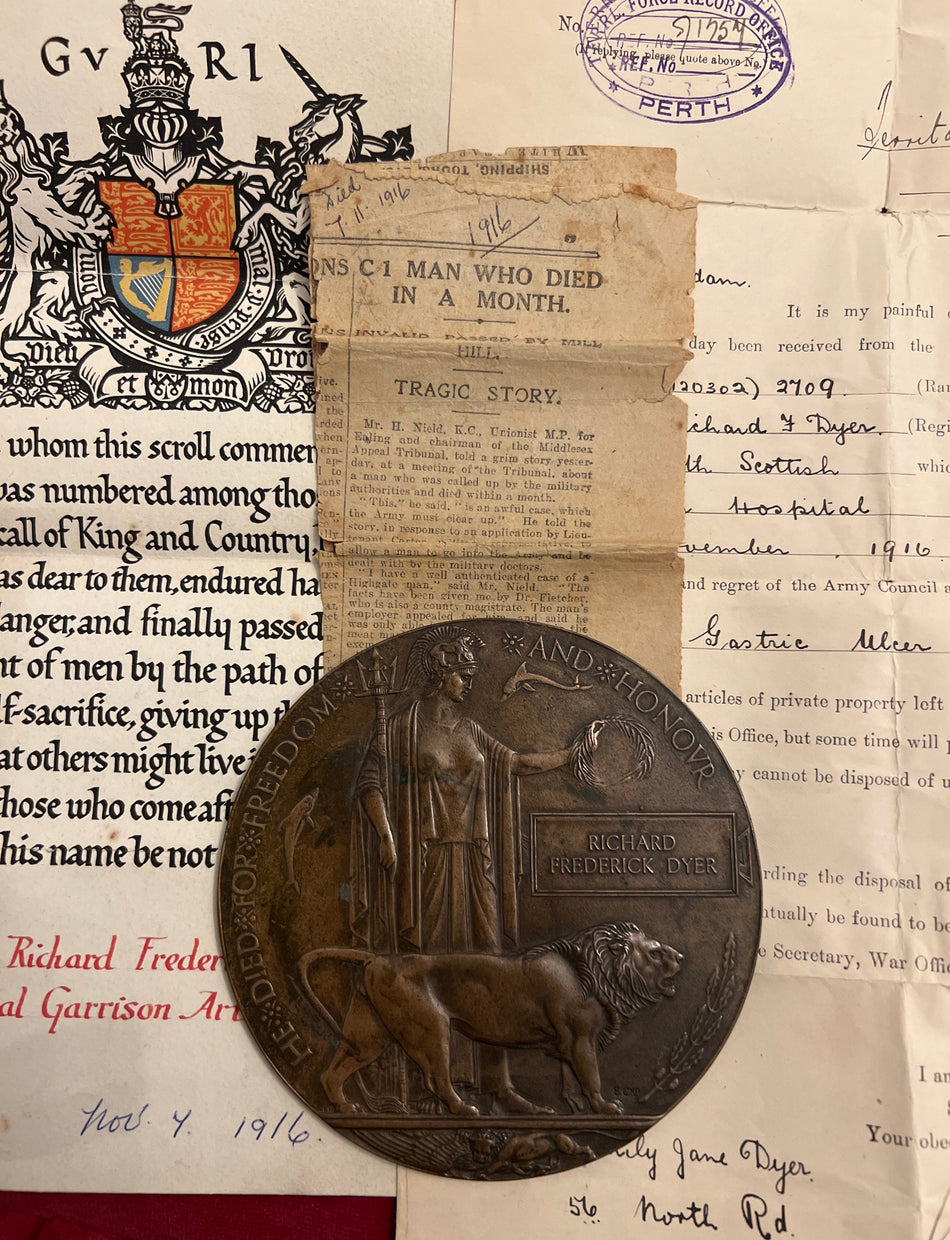 GV RI
Dieu
et mon
Droi
whom this scroll commem
was numbered among tho
call of King and Country,
as dear to them, endured ha
anger, and finally passed
ht of men by the path of
lf-sacrifice, giving up th
at others might live i
hose who come aft
his name be not
Richard Freder
al Garrison Art
Nov. 7. 1916.
SHIPPING, TOURS,
Died
7.11.1916
1916
ONS
C 1 MAN WHO DIED
IN A MONTH.
INVALID PASSED BY MILL
HILL.
TRAGIC STORY.
Mr. H. Nield, K.C., Unionist M.P. for
Ealing and chairman of the Middlesex
Appeal Tribunal, told a grim story yester-
day, at a meeting of the Tribunal, about
a man who was called up by the military
authorities and died within a month.
"This," he said, "is an awful case, which
the Army must clear up." He told the
story, in response to an application by Lieu-
tenant
allow a man to go into the Army and be
dealt with by the military doctors.
"I have a well authenticated case of a
Highgate man," said Mr. Nield. "The
facts have been given me by Dr. Fletcher,
who is also a county magistrate. The man's
employer appealed for him and said he
was only able
meat
HE DIED FOR FREEDOM AND HONOVR
RICHARD
FREDERICK DYER
No.
FORCE RECORD OFFICE
REF. No. S/1757
(If replying, please quote above No.)
REF. No.
PERTH
Territo
dam.
It is my painful
day been received from the
(120302) 2709. (Ran
ichard F Dyer. (Regi
th Scottish whic
Hospital
vember, 1916
and regret of the Army Council a
Gastric Ulcer
articles of private property left
is Office, but some time will
y cannot be disposed of u
rding the disposal of
ntually be found to be
e Secretary, War Offic
I am
Your obe
ily Jane Dyer.
56 North Rd.